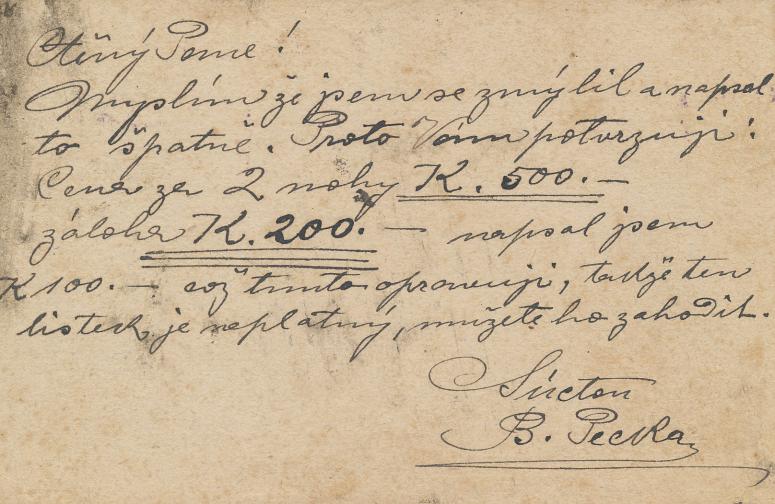 Ctěný Pane!
Myslím že jsem se zmýlil a napsal
to špatně. Proto Vám potvrzuji:
Cena za 2 nohy K. 500.—
záloha K. 200.— napsal jsem
K 100.— což tímto opravuji, takže ten
lístek je neplatný, můžete ho zahodit.
S úctou
B. Pecka